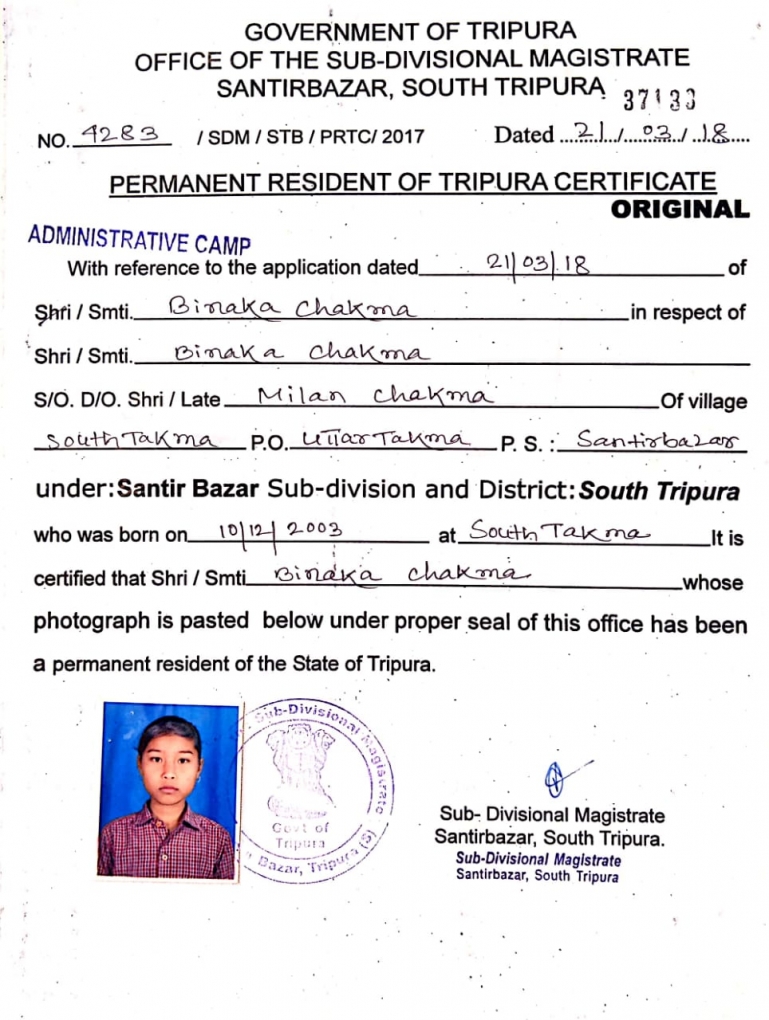 GOVERNMENT OF TRIPURA
OFFICE OF THE SUB-DIVISIONAL MAGISTRATE
SANTIRBAZAR, SOUTH TRIPURA
37133
NO. 4283 / SDM / STB / PRTC/ 2017 Dated 21/03/18
PERMANENT RESIDENT OF TRIPURA CERTIFICATE
ORIGINAL
ADMINISTRATIVE CAMP
With reference to the application dated 21/03/18 of
Shri / Smti. Binaka Chakma in respect of
Shri / Smti. Binaka Chakma
S/O. D/O. Shri / Late Milan Chakma Of village
South Takma P.O. Uttar Takma P. S. : Santirbazar
under: Santir Bazar Sub-division and District: South Tripura
who was born on 10/12/2003 at South Takma It is
certified that Shri / Smti Binaka Chakma whose
photograph is pasted below under proper seal of this office has been
a permanent resident of the State of Tripura.
Sub-Divisional Magistrate
Govt of
Tripura
Bazar, Tripura (S)
Sub- Divisional Magistrate
Santirbazar, South Tripura.
Sub-Divisional Magistrate
Santirbazar, South Tripura